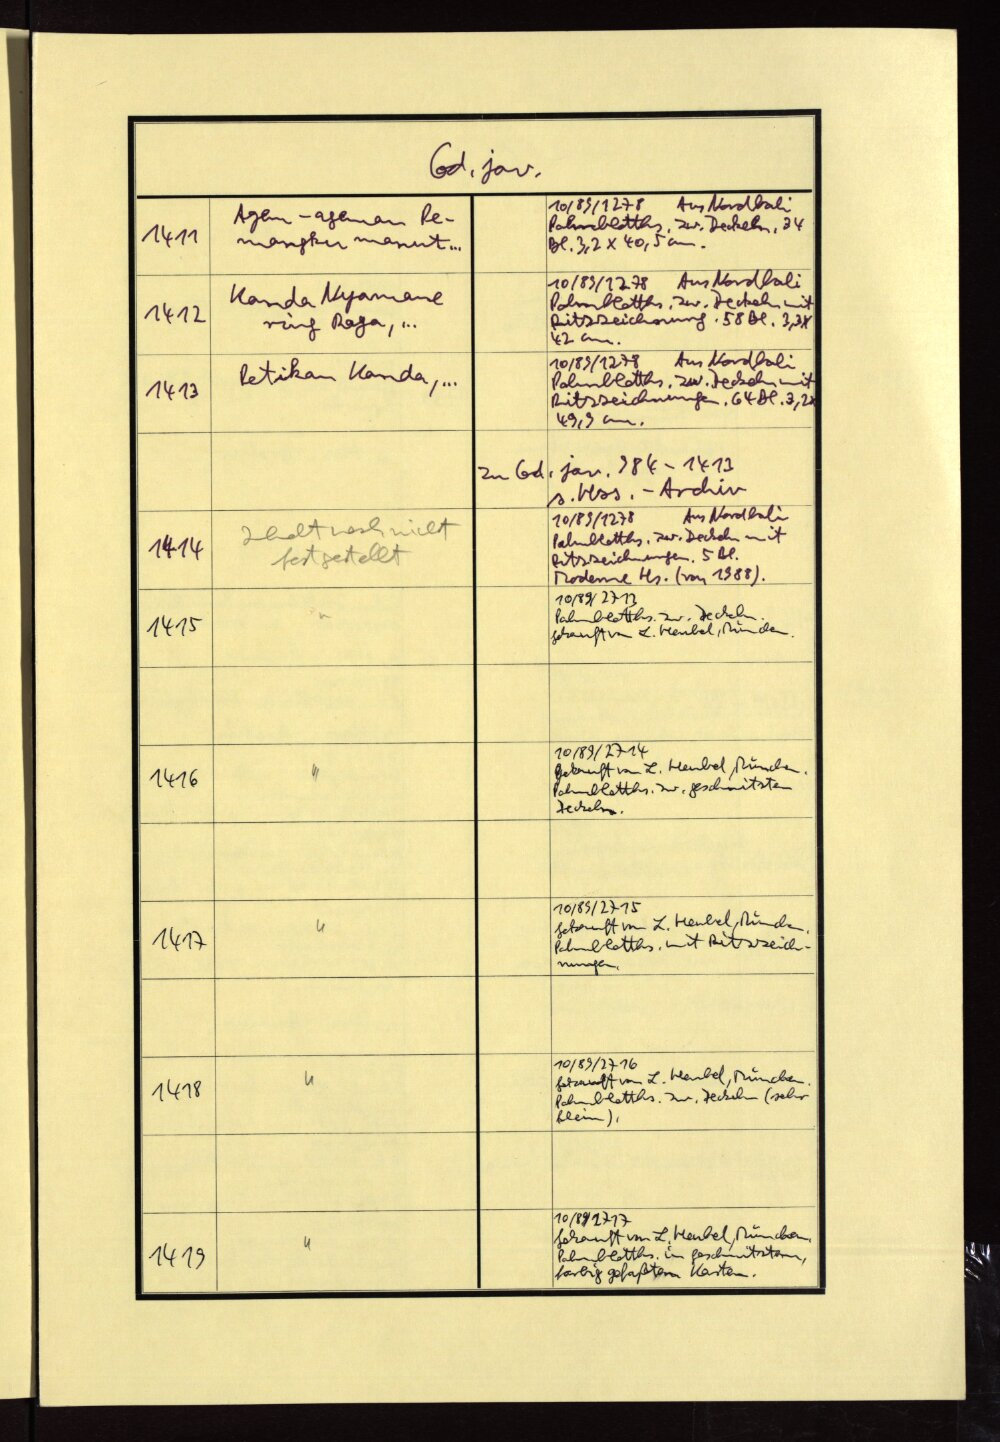 Cod. jav.
1411
Agem-ageman Pe-
mangku manut...
10/89/1278 Aus Nordbali
Palmblatths. zw. Deckeln, 34
Bl. 3,2 x 40,5 cm.
1412
Kanda Nyamane
ring Raga, ...
10/89/1278 Aus Nordbali
Palmblatths. zw. Deckeln mit
Ritzzeichnung. 58 Bl. 3,3x
42 cm.
1413
Petikan Kanda, ...
10/89/1278 Aus Nordbali
Palmblatths. zw. Deckeln mit
Ritzzeichnungen. 64 Bl. 3,2x
49,9 cm.
zu Cod. jav. 984-1413
s. Hss.-Archiv
1414
Inhalt noch nicht
festgestellt
10/89/1278 Aus Nordbali
Palmblatths. zw. Deckeln mit
Ritzzeichnungen. 5 Bl.
Moderne Hs. (von 1988).
1415
"
10/89/2713
Palmblatths. zw. Deckeln.
gekauft von L. Heubel, München.
1416
"
10/89/2714
gekauft von L. Heubel, München.
Palmblatths. zw. geschnitzten
Deckeln.
1417
"
10/89/2715
gekauft von L. Heubel, München.
Palmblatths. mit Ritzzeich-
nungen.
1418
"
10/89/2716
gekauft von L. Heubel, München.
Palmblatths. zw. Deckeln (sehr
klein).
1419
"
10/89/2717
gekauft von L. Heubel, München.
Palmblatths. in geschnitztem,
farbig gefaßtem Kasten.